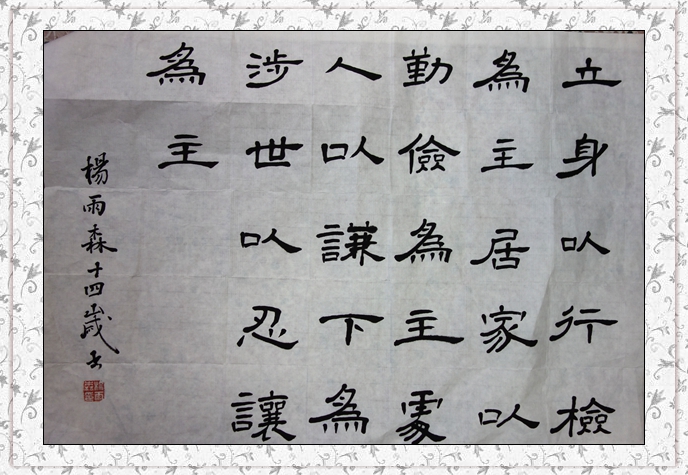 立身以行檢
為主居家以
勤儉為主處
人以謙下為
涉世以忍讓
為主
楊雨森十四歲书